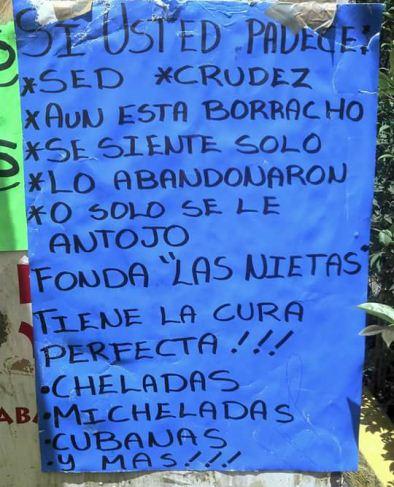 SI USTED PADECE:
*SED *CRUDEZ
*AUN ESTA BORRACHO
*SE SIENTE SOLO
*LO ABANDONARON
*O SOLO SE LE
ANTOJO
FONDA "LAS NIETAS"
TIENE LA CURA
PERFECTA!!!
•CHELADAS
•MICHELADAS
•CUBANAS
•Y MAS!!!